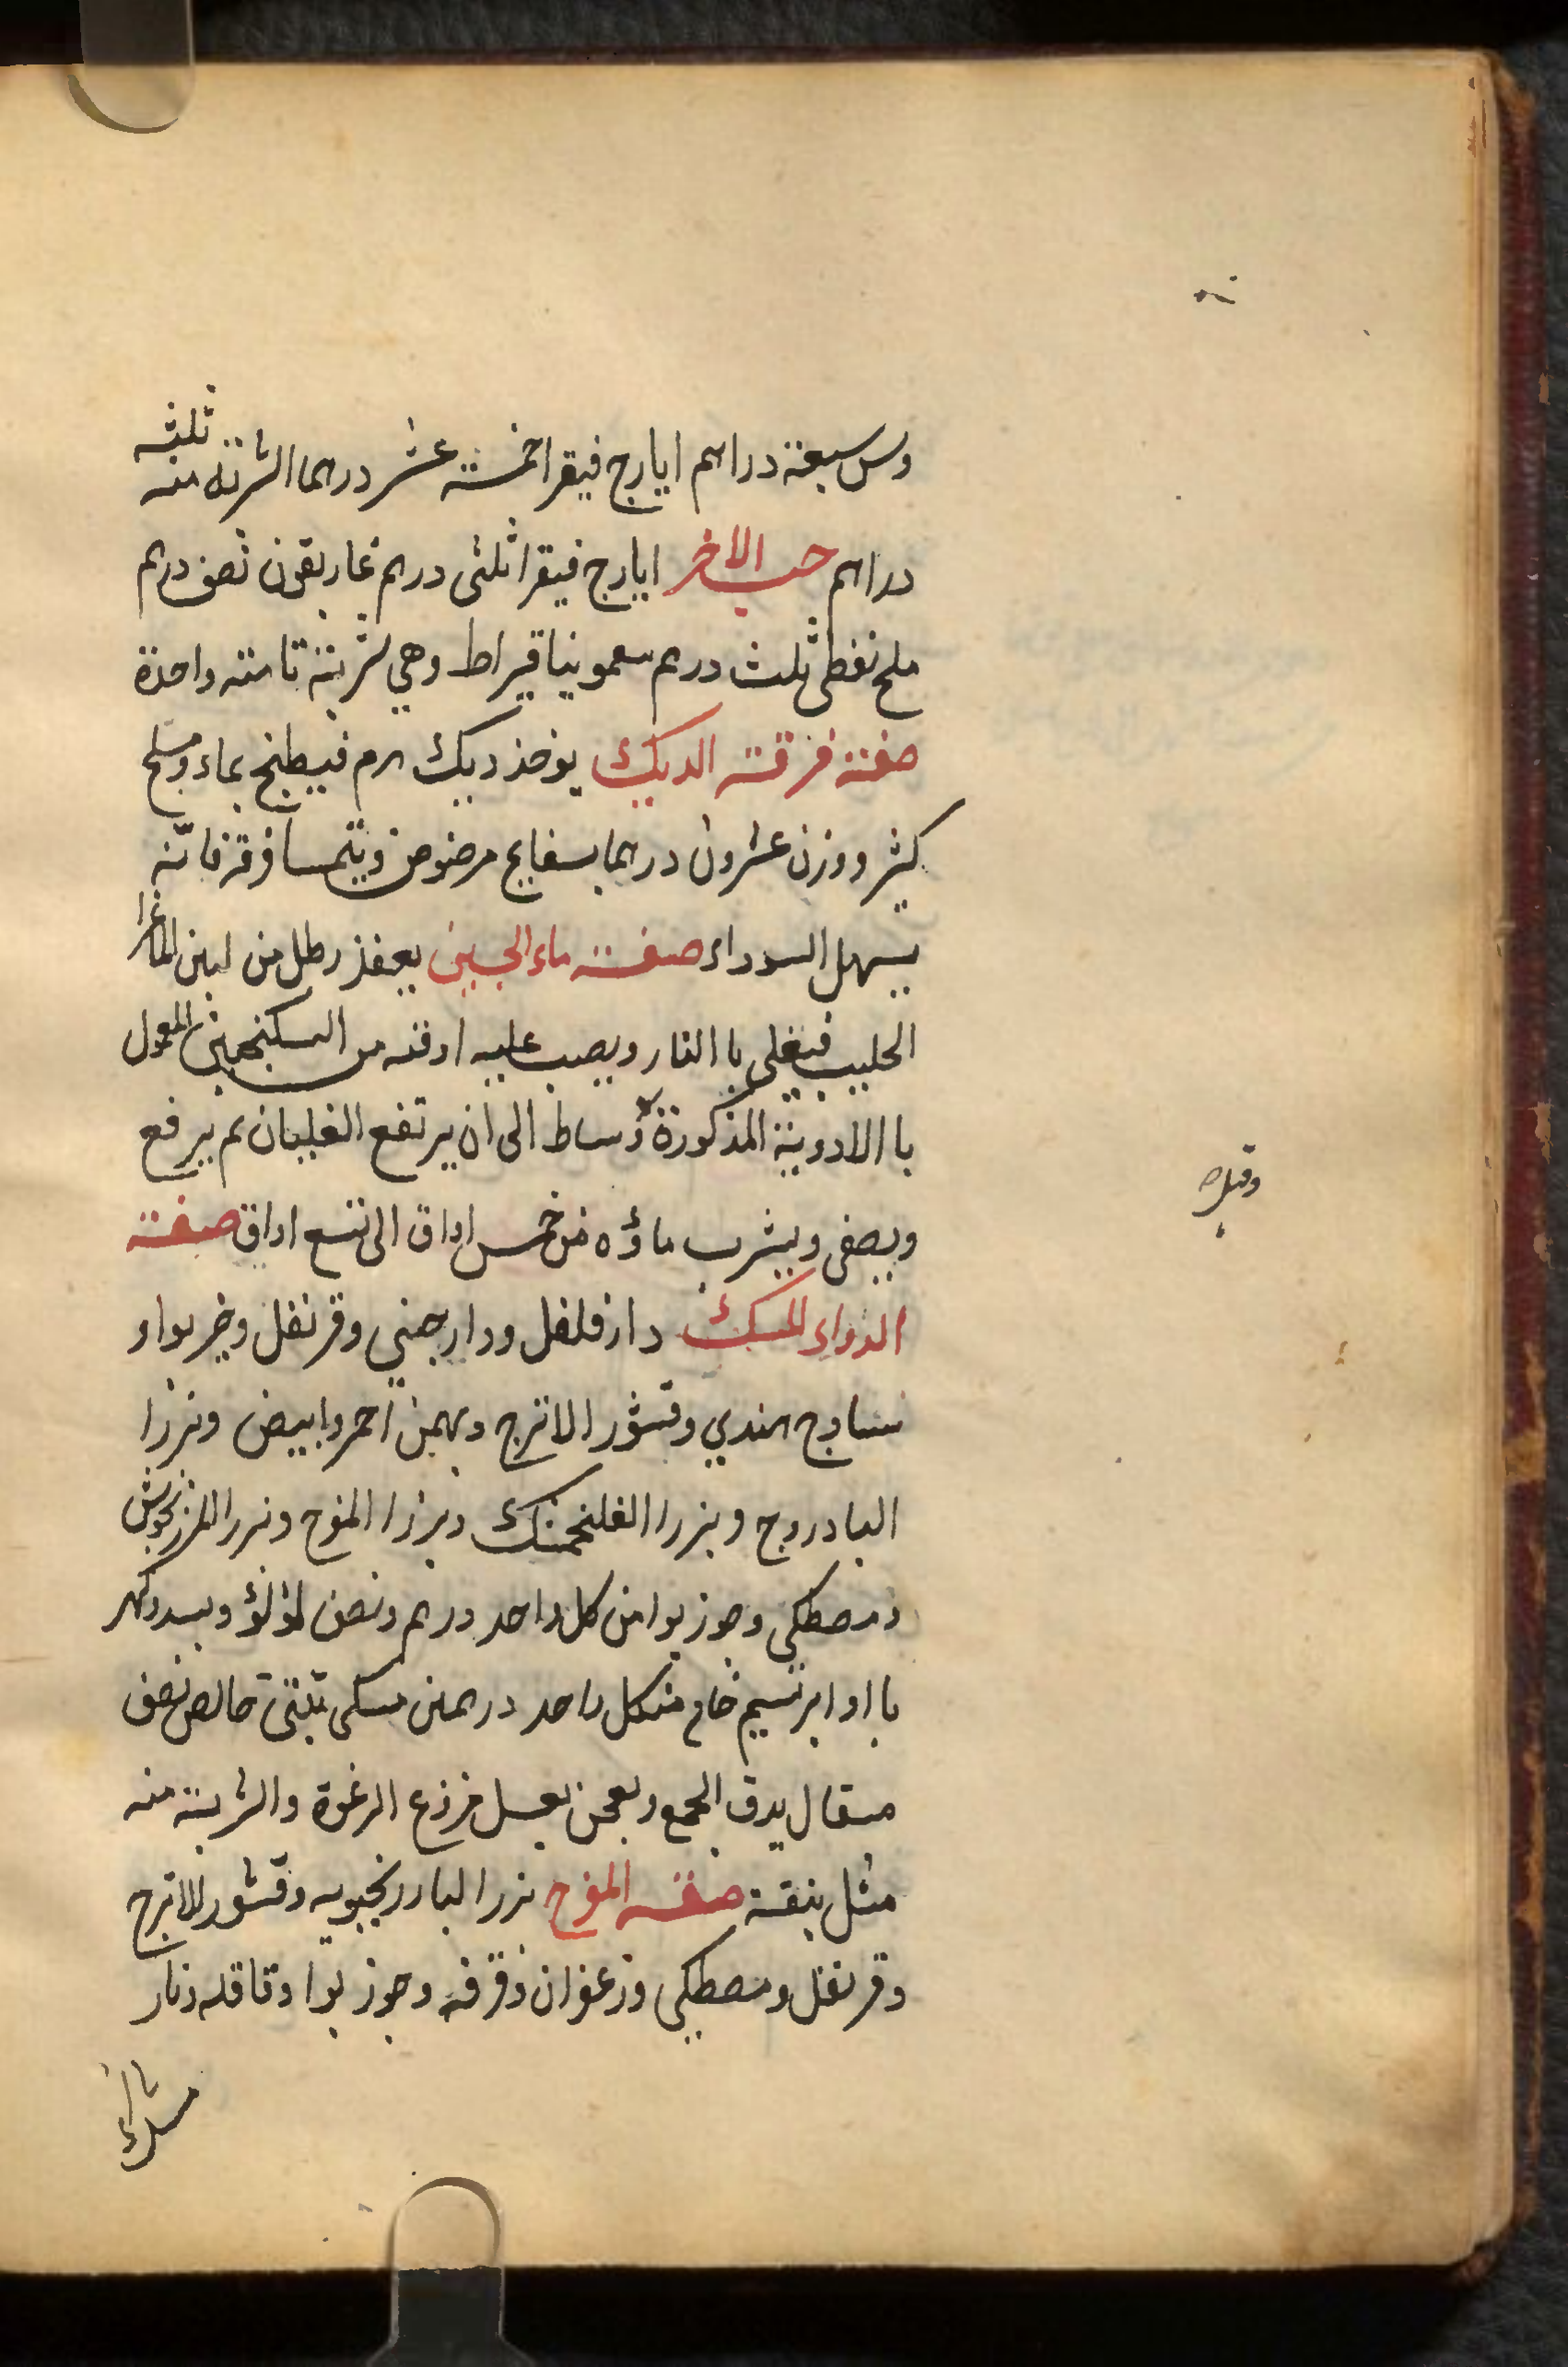 وس سبعة دراهم ايارج فيقرا خمسة عشر درهما الشربة منه ثلثه
دراهم حب الاخر ايارج فيقرا ثلثى درهم غاريقون نصف درهم
ملح نفطى ثلث درهم سعمونيا قيراط وهي شربة تامته واحدة
صفته فرقته الديك يوخذ ديك هرم فيطبخ بماء وملح
كثير ووزن عشرون درهما بسفايج مرضوض ويتحسا فرقه فانّه
يسهل السوداء صفته ماء الجبن يوخذ رطل من لبن الماعز
الحليب فيغلى با النار ويصب عليه اوقيه من السكنجبين المعمول
با الادوية المذكورة وساط الى ان يرتفع الغليان ثم يرفع
ويصفى ويشرب ماؤه من خمس اواق الى تسع اواق صفته
الدواء المسك دار فلفل ودارجيني وقرنفل وخربوا و
ساوج هندي وقشور الاترج وبهمن احمر وابيض وبزرا
البادروج وبزرا الفلنجمنك وبزرا المفرح وبزرا المرزنجوش
ومصطكى وجوز بوا من كل واحد درهم ونصف لؤلؤ وبسد وكهر
با او ابرتسيم خام منكل واحد درهمين مسكى تبتى خالص نصف
مسقال يدق الجمع ويعجن بعسل منزوع الرغوة والشربته منه
مثل بنقة صفته المفرح بزرا البادرنجبويه وقشور الاترج
وقرنفل ومصطكى وزعفران وقرفه وجوز بوا وقاقله ونار
وقيله